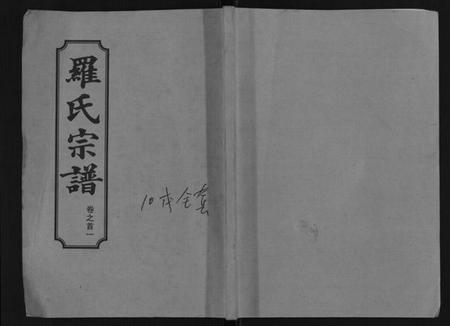 羅氏宗譜
卷之首一
10本全套